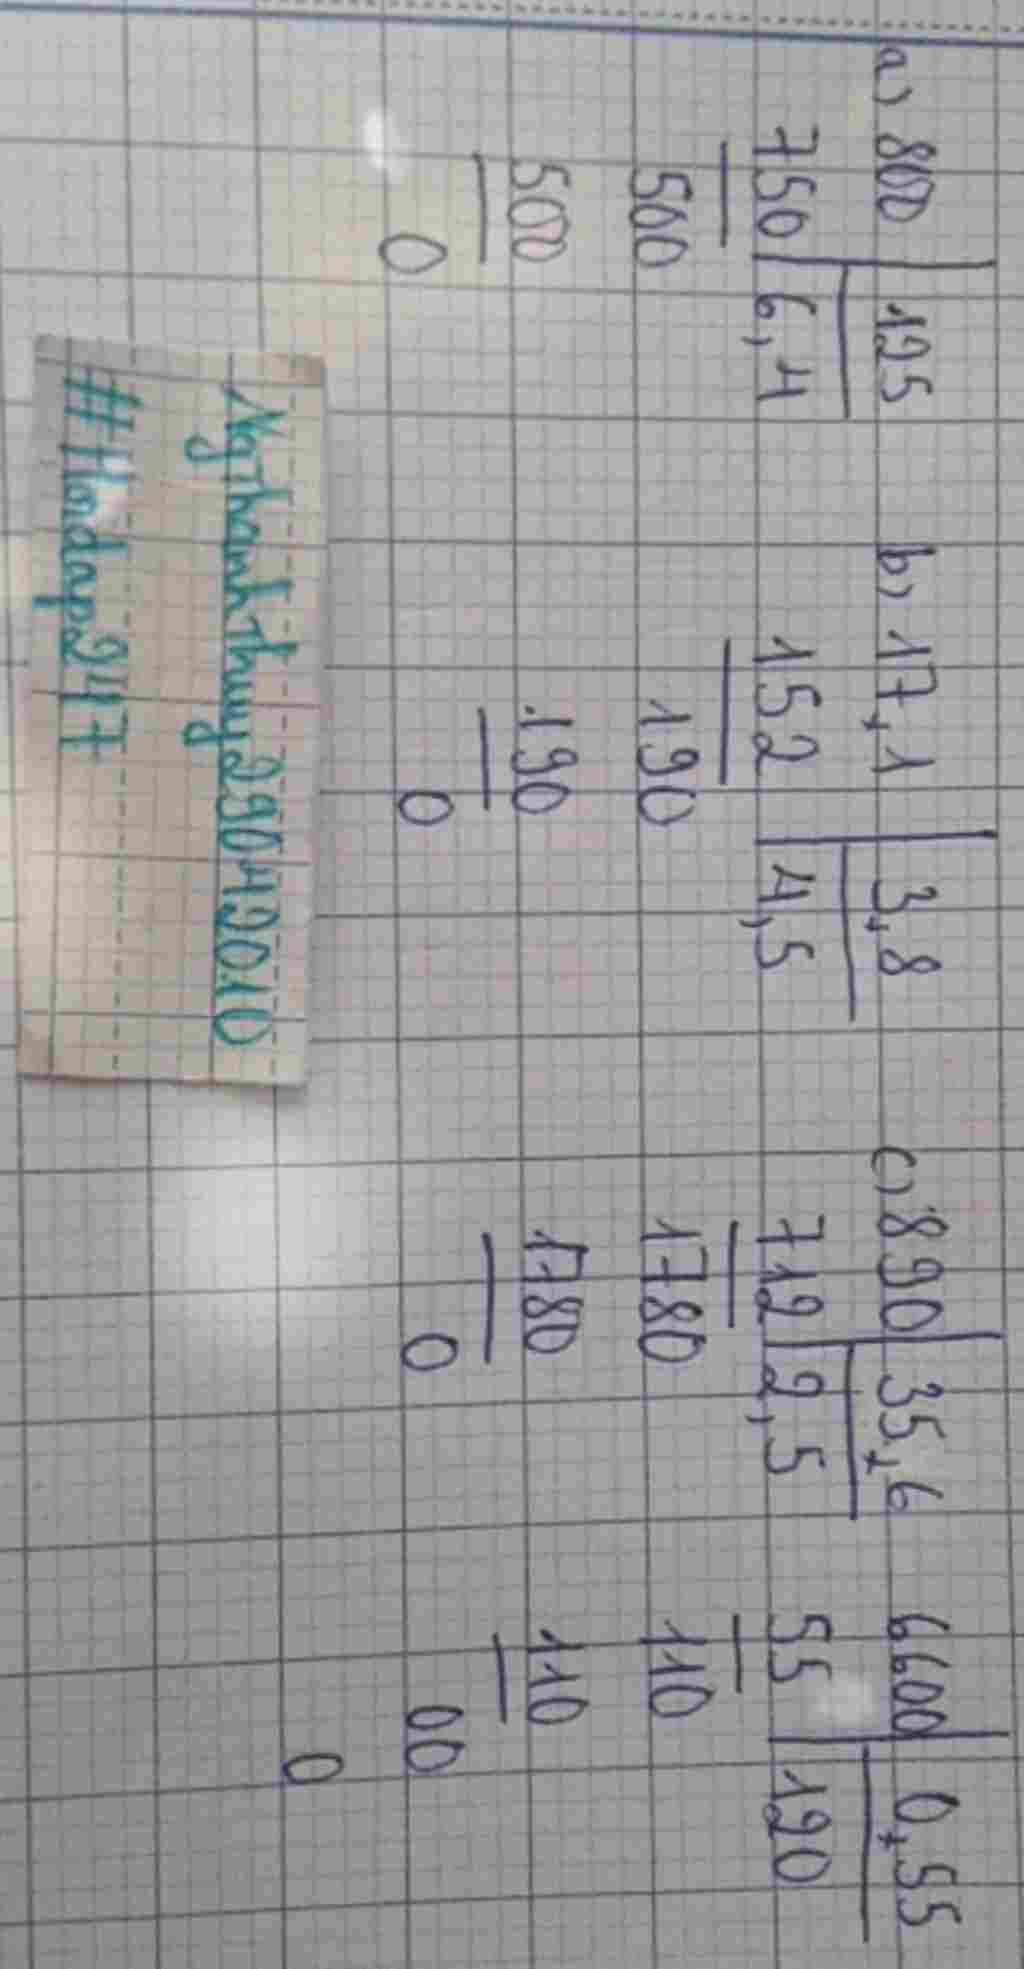 a) 800 125 b) 17,1 3,8 c) 890 35,6 6600 0,55
750 6,4 152 4,5 712 2,5 55 120
500 190 1780 110
500 190 1780 110
0 0 0 00
0
NgThanhThuy29042010
#Hoidap247